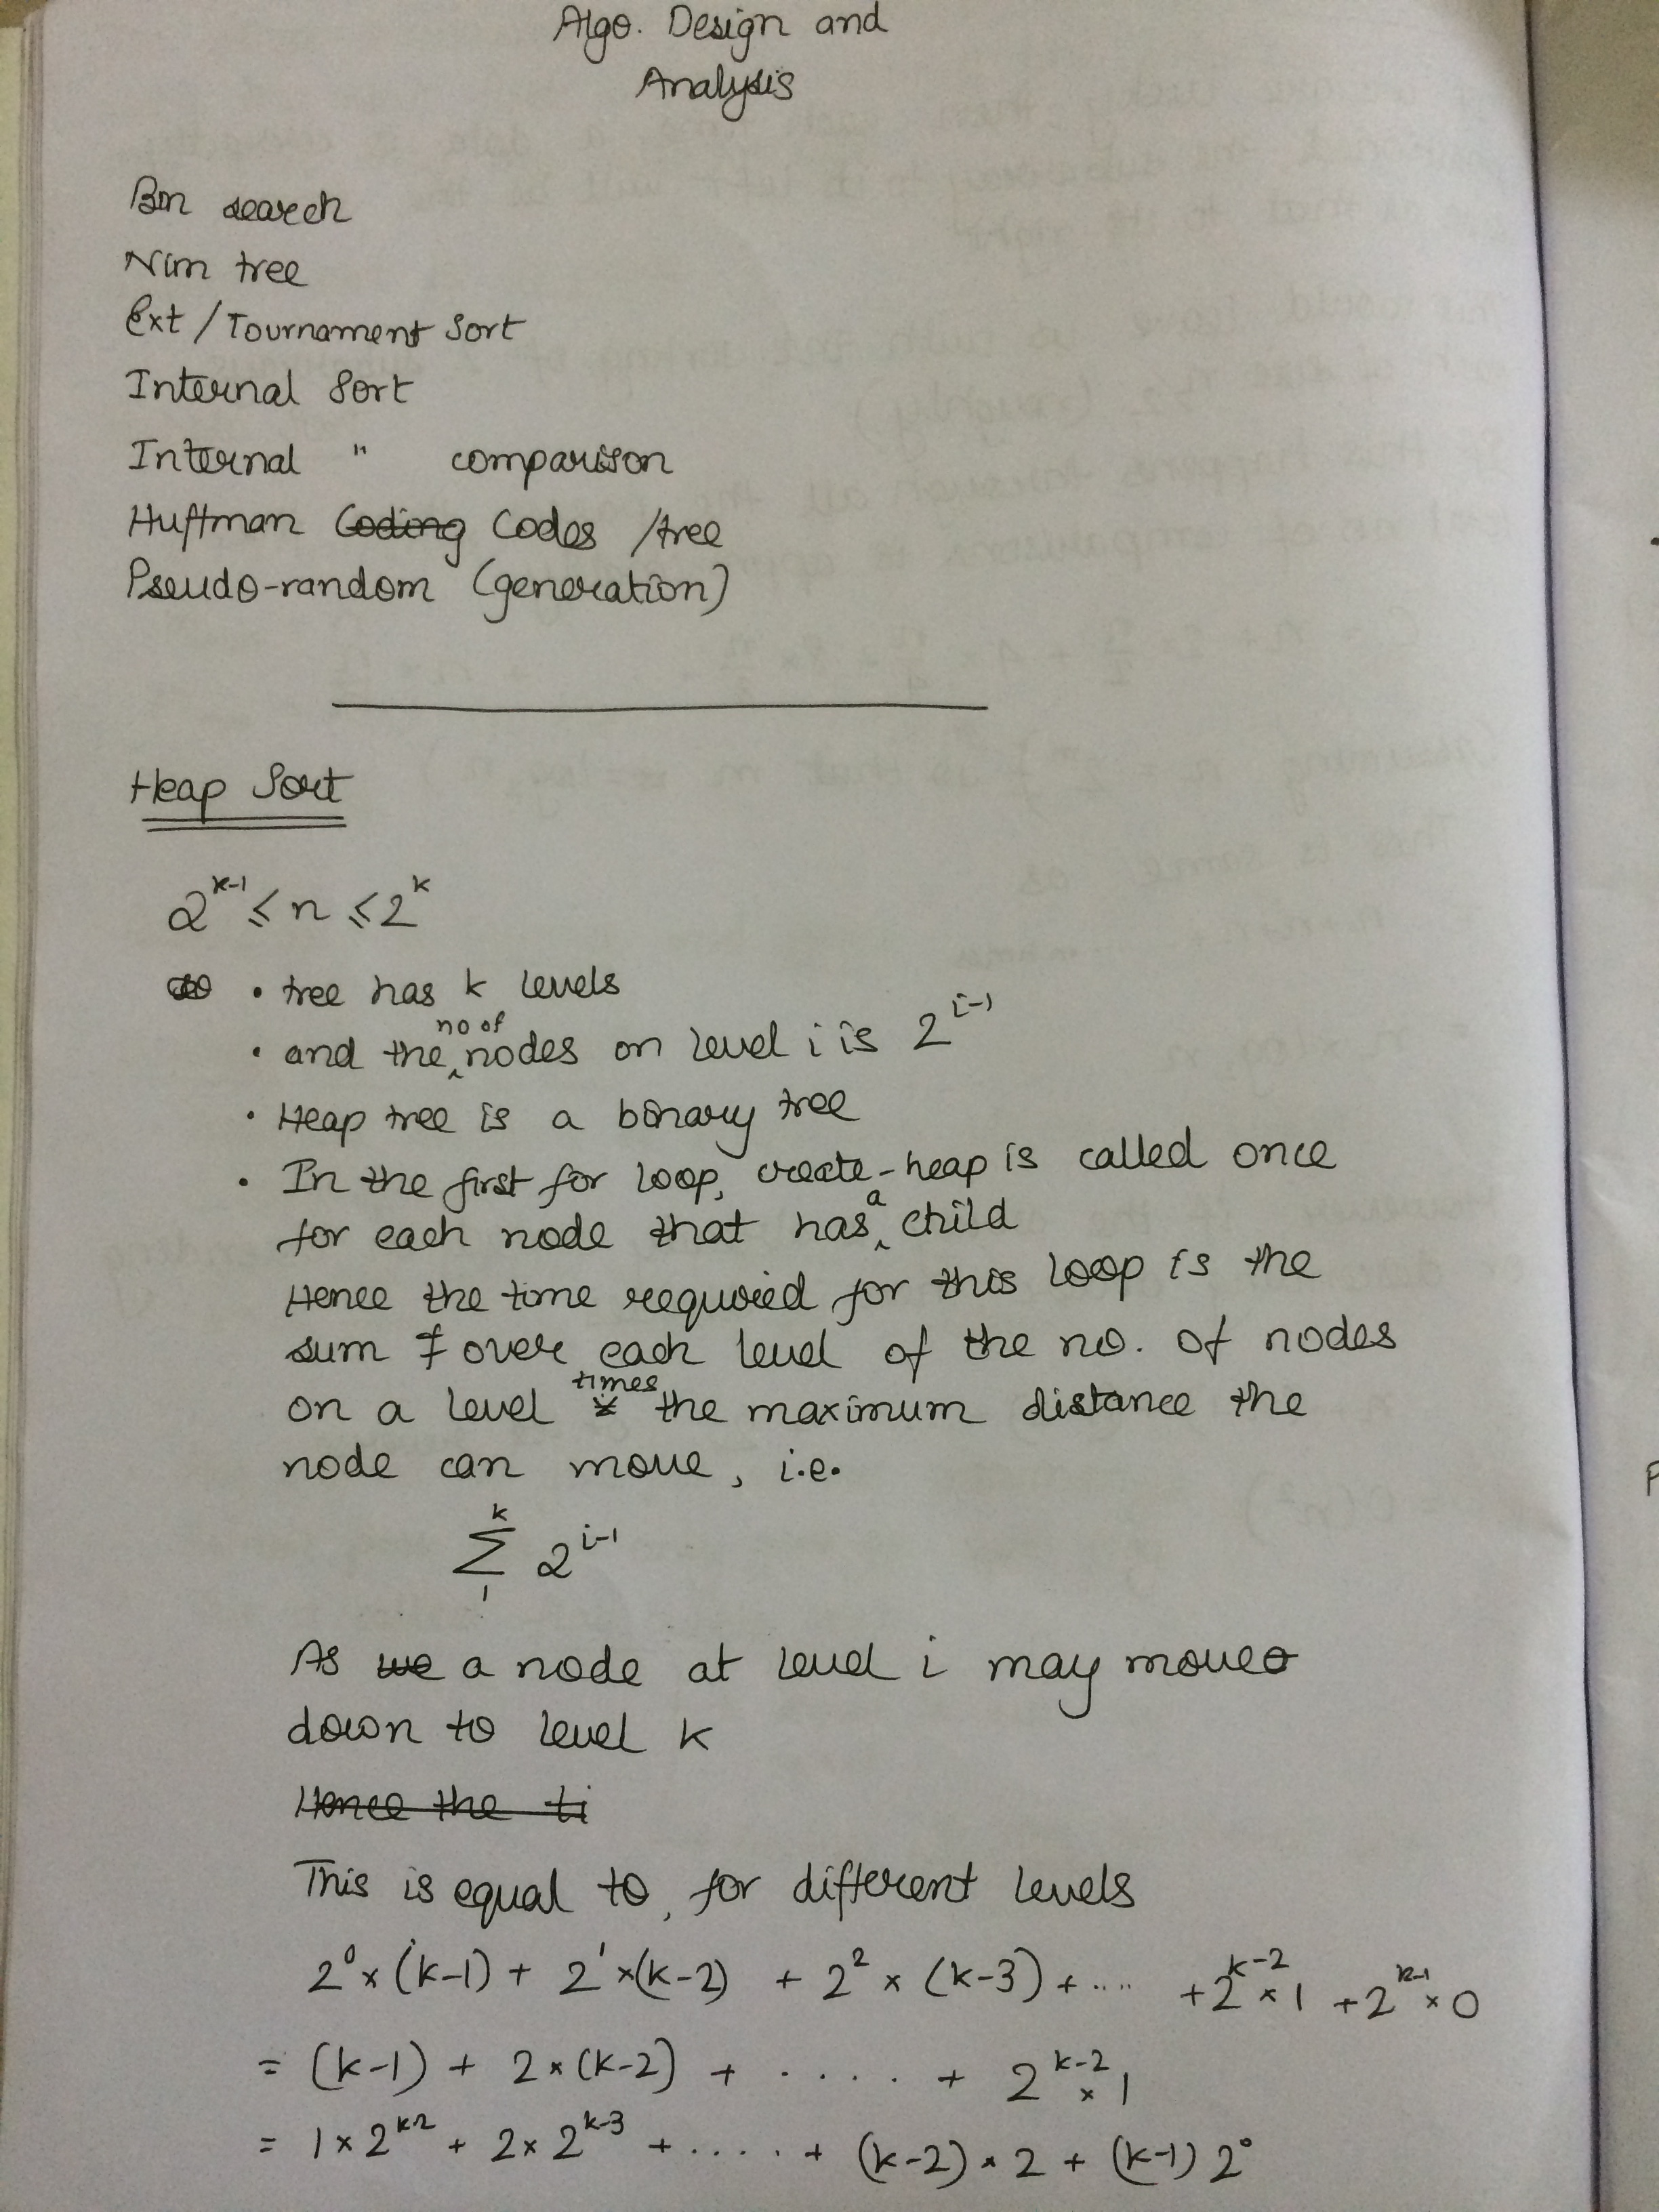 Algo. Design and
Analysis
Bin search
Nim tree
Ext / Tournament Sort
Internal Sort
Internal " comparison
Huffman Coding Codes /tree
Pseudo-random (generation)
Heap Sort
2^{k-1} ≤ n ≤ 2^k
• tree has k levels
• and the no of nodes on level i is 2^{i-1}
• Heap tree is a binary tree
• In the first for loop, create-heap is called once
for each node that has a child
Hence the time required for this loop is the
sum over each level of the no. of nodes
on a level times the maximum distance the
node can move, i.e.
k
Σ 2^{i-1}
1
As we a node at level i may move
down to level k
Hence the ti
This is equal to, for different levels
2^0 × (k-1) + 2^1 × (k-2) + 2^2 × (k-3) + .... + 2^{k-2} × 1 + 2^{k-1} × 0
= (k-1) + 2 × (k-2) + ..... + 2^{k-2} × 1
= 1 × 2^{k-2} + 2 × 2^{k-3} + ..... + (k-2) × 2 + (k-1) 2^0